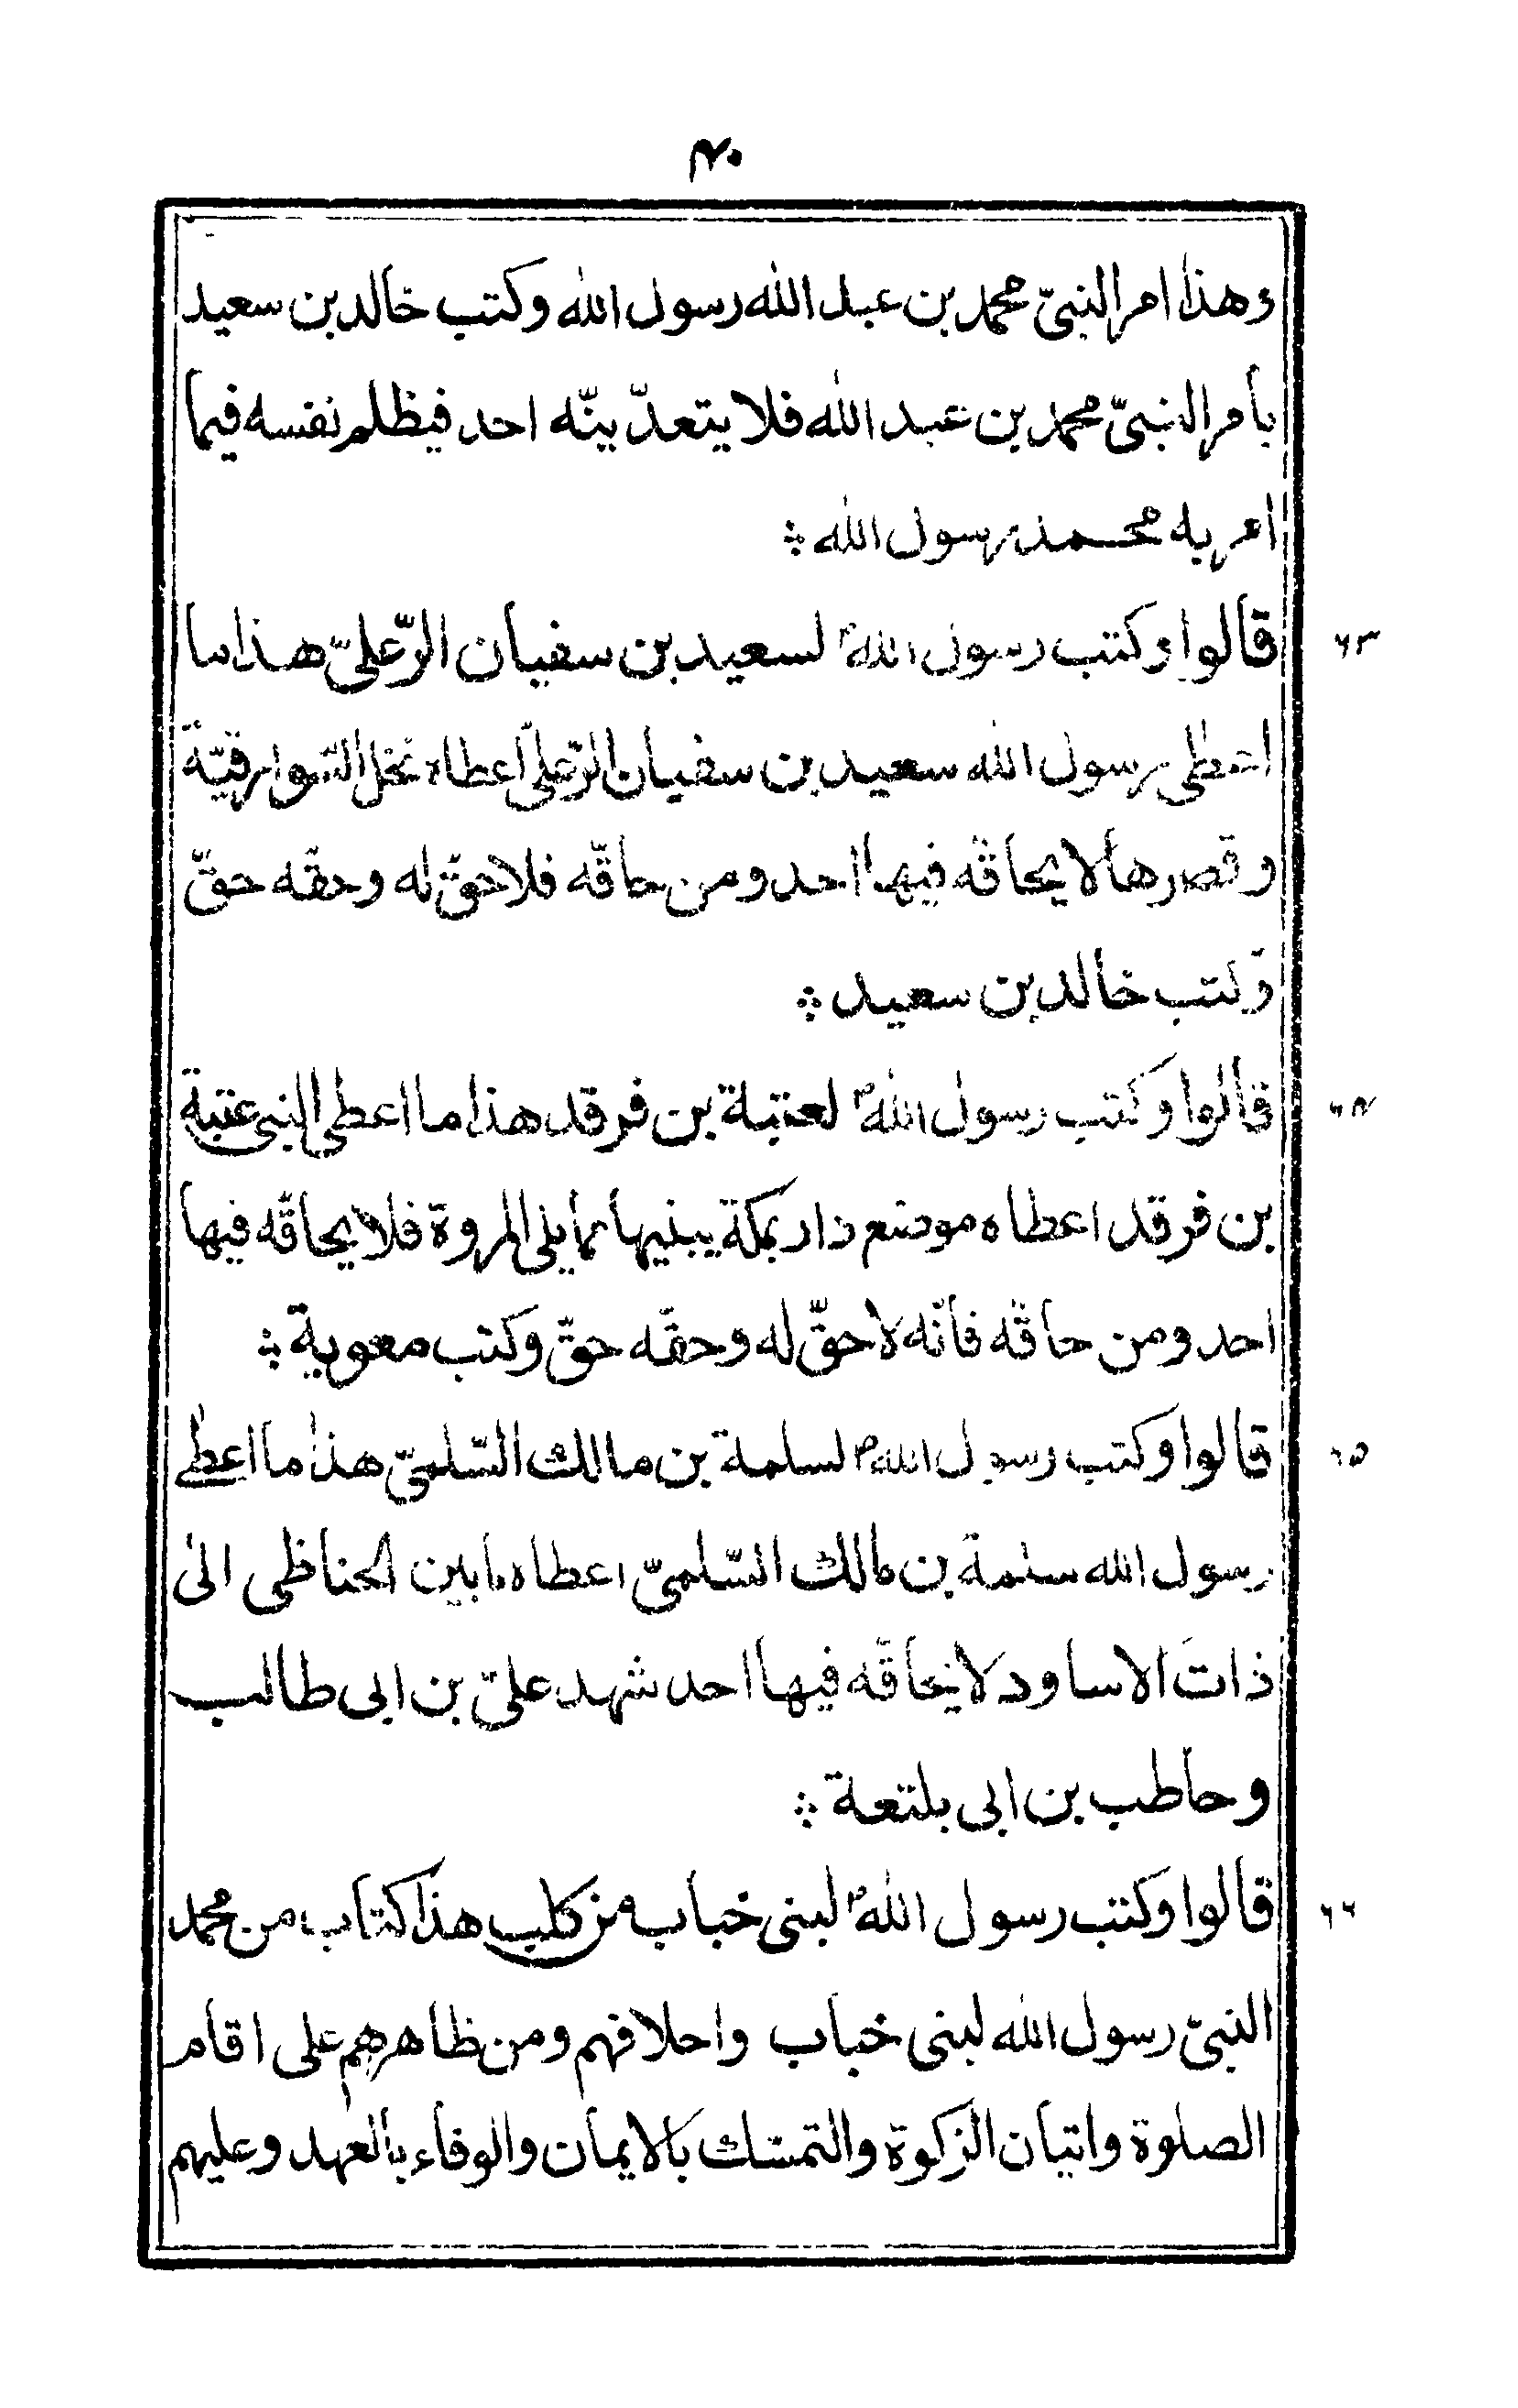 ۴۰
وهذا امر النبیّ محمد بن عبد الله رسول الله وكتب خالد بن سعيد
بامر النبیّ محمد بن عبد الله فلا يتعدّينّه احد فيظلم نفسه فيما
امر به محمد رسول الله ⁘
۶۳ قالوا وكتب رسول اللهؐ لسعيد بن سفيان الرّعلیّ هذا ما
اعطى رسول الله سعيد بن سفيان الرّعلیّ اعطاه نخل السّوارقيّة
وقصرها لا يحاقّه فيها احد ومن حاقّه فلا حقّ له وحقه حقّ
وكتب خالد بن سعيد ⁘
۶۴ قالوا وكتب رسول اللهؐ لعتبة بن فرقد هذا ما اعطى النبی عتبة
بن فرقد اعطاه موضع دار بمكة يبنيها مما يلی المروة فلا يحاقّه فيها
احد ومن حاقّه فانّه لا حقّ له وحقّه حقّ وكتب معوية ⁘
۶۵ قالوا وكتب رسول اللهؐ لسلمة بن مالك السّلمیّ هذا ما اعطى
رسول الله سلمة بن مالك السّلمیّ اعطاه ما بين الحناظی الى
ذات الاساود لا يحاقّه فيها احد شهد علیّ بن ابی طالب
وحاطب بن ابی بلتعة ⁘
۶۶ قالوا وكتب رسول اللهؐ لبنی خباب من كلب هذا كتاب من محمد
النبیّ رسول الله لبنی خباب واحلافهم ومن ظاهرهم على اقام
الصلوة وايتان الزكوة والتمسّك بالايمان والوفاء بالعهد وعليهم